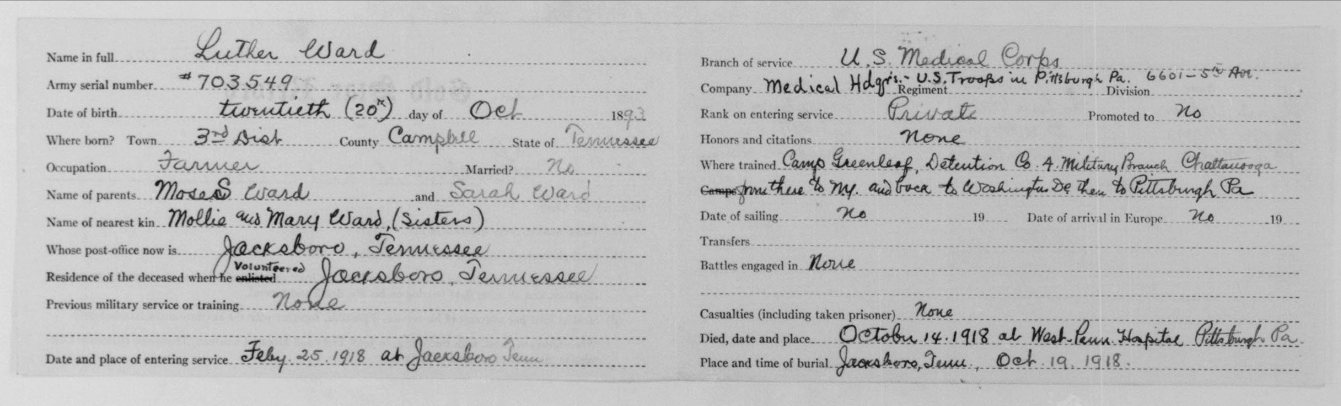 Name in full Luther Ward
Army serial number #703,549
Date of birth twentieth (20th) day of Oct 1893
Where born? Town 3rd Dist County Campbell State of Tennessee
Occupation Farmer Married? No
Name of parents Moses Ward and Sarah Ward
Name of nearest kin Mollie and Mary Ward, (Sisters)
Whose post-office now is Jacksboro, Tennessee
Residence of the deceased when he enlisted Volunteered Jacksboro, Tennessee
Previous military service or training None
Date and place of entering service Feby. 25, 1918 at Jacksboro Tenn
Branch of service U.S. Medical Corps
Company Medical Hdqrs. - U.S. Troops in Pittsburgh Pa. 6601 - 5th Ave. Regiment Division
Rank on entering service Private Promoted to No
Honors and citations None
Where trained Camp Greenleaf, Detention Co. 4. Military Branch Chattanooga
Camps from there to NY. and back to Washington DC then to Pittsburgh Pa
Date of sailing No 19 Date of arrival in Europe No 19
Transfers
Battles engaged in None
Casualties (including taken prisoner) None
Died, date and place October 14, 1918 at West Penn Hospital Pittsburgh Pa.
Place and time of burial Jacksboro, Tenn, Oct 19, 1918.